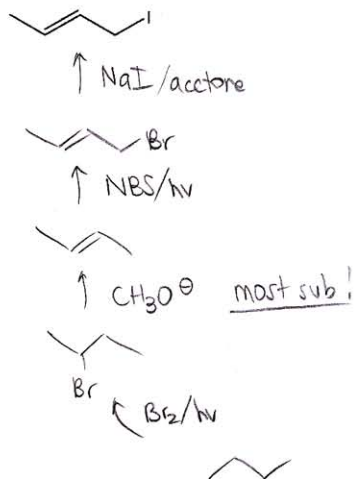 I
NaI/acctone
Br
NBS/hv
CH3O⊖ most sub!
Br
Br2/hv